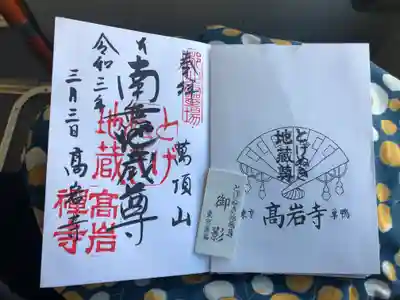 奉拝
萬頂山
南無地蔵尊
令和三年
三月三日 高岩寺
とげ
地蔵
高岩
禅寺
とげぬき
地蔵尊
東京
高岩寺
巣鴨
御影